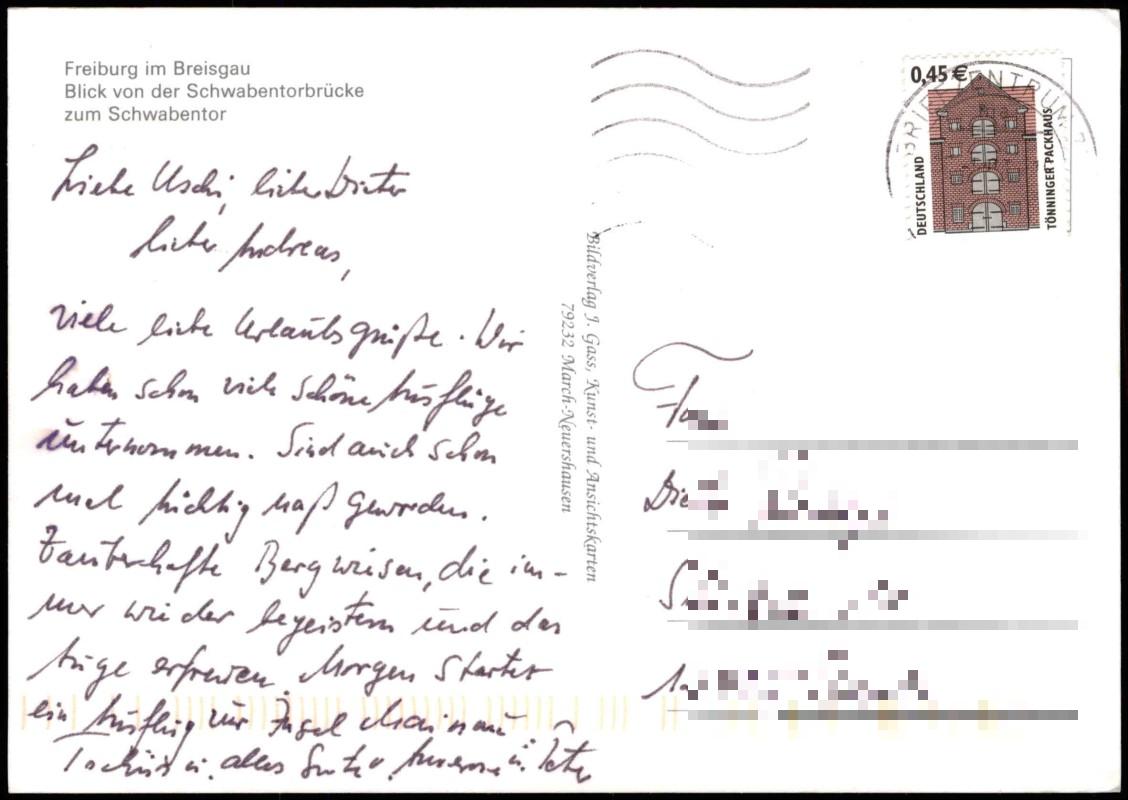 Freiburg im Breisgau
Blick von der Schwabentorbrücke
zum Schwabentor
Liebe Uschi, lieber Dieter
lieber Andreas,
viele liebe Urlaubsgrüße. Wir
haben schon viele schöne Ausflüge
unternommen. Sind auch schon
mal tüchtig naß geworden.
Zauberhafte Bergwiesen, die im-
mer wieder begeistern und das
Auge erfreuen. Morgen startet
ein Ausflug zur Insel Mainau
Tschüss u. alles Gute
Bildverlag J. Gass, Kunst- und Ansichtskarten
79232 March-Neuershausen
0,45 €
DEUTSCHLAND
TÖNNINGER PACKHAUS
BRIEFZENTRUM